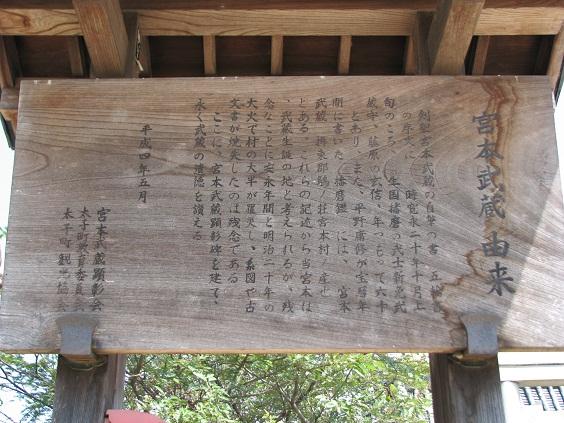 宮本武蔵 由来
剣聖宮本武蔵の自筆の書「五輪書」
の序文に「時寛永二十年十月上
旬のころ、生国播磨の武士新免武
蔵守、藤原の玄信、年つもって六十」
とあり、また、平野庸脩が宝暦年
間に書いた「播磨鑑」には、「宮本
武蔵、揖東郡鵤ノ荘宮本村ノ産也」
とある。これらの記述から当宮本は
、武蔵生誕の地と考えられるが、残
念なことに安永年間と明治二十年の
大火で村の大半が罹災し、系図や古
文書が焼失したのは残念である。
ここに、宮本武蔵顕彰碑を建て、
永く武蔵の遺徳を讃える。
平成四年五月
宮本武蔵顕彰会
太子町教育委員会
太子町観光協会